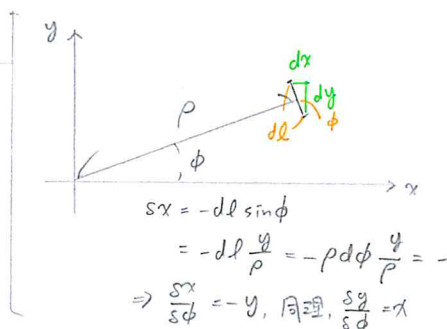 y
dx
dy
ρ
dl
φ
φ
x
δx = -dl sinφ
= -dl y/ρ = -ρdφ y/ρ = -
⇒ δx/δφ = -y, 同理, δy/δφ = x